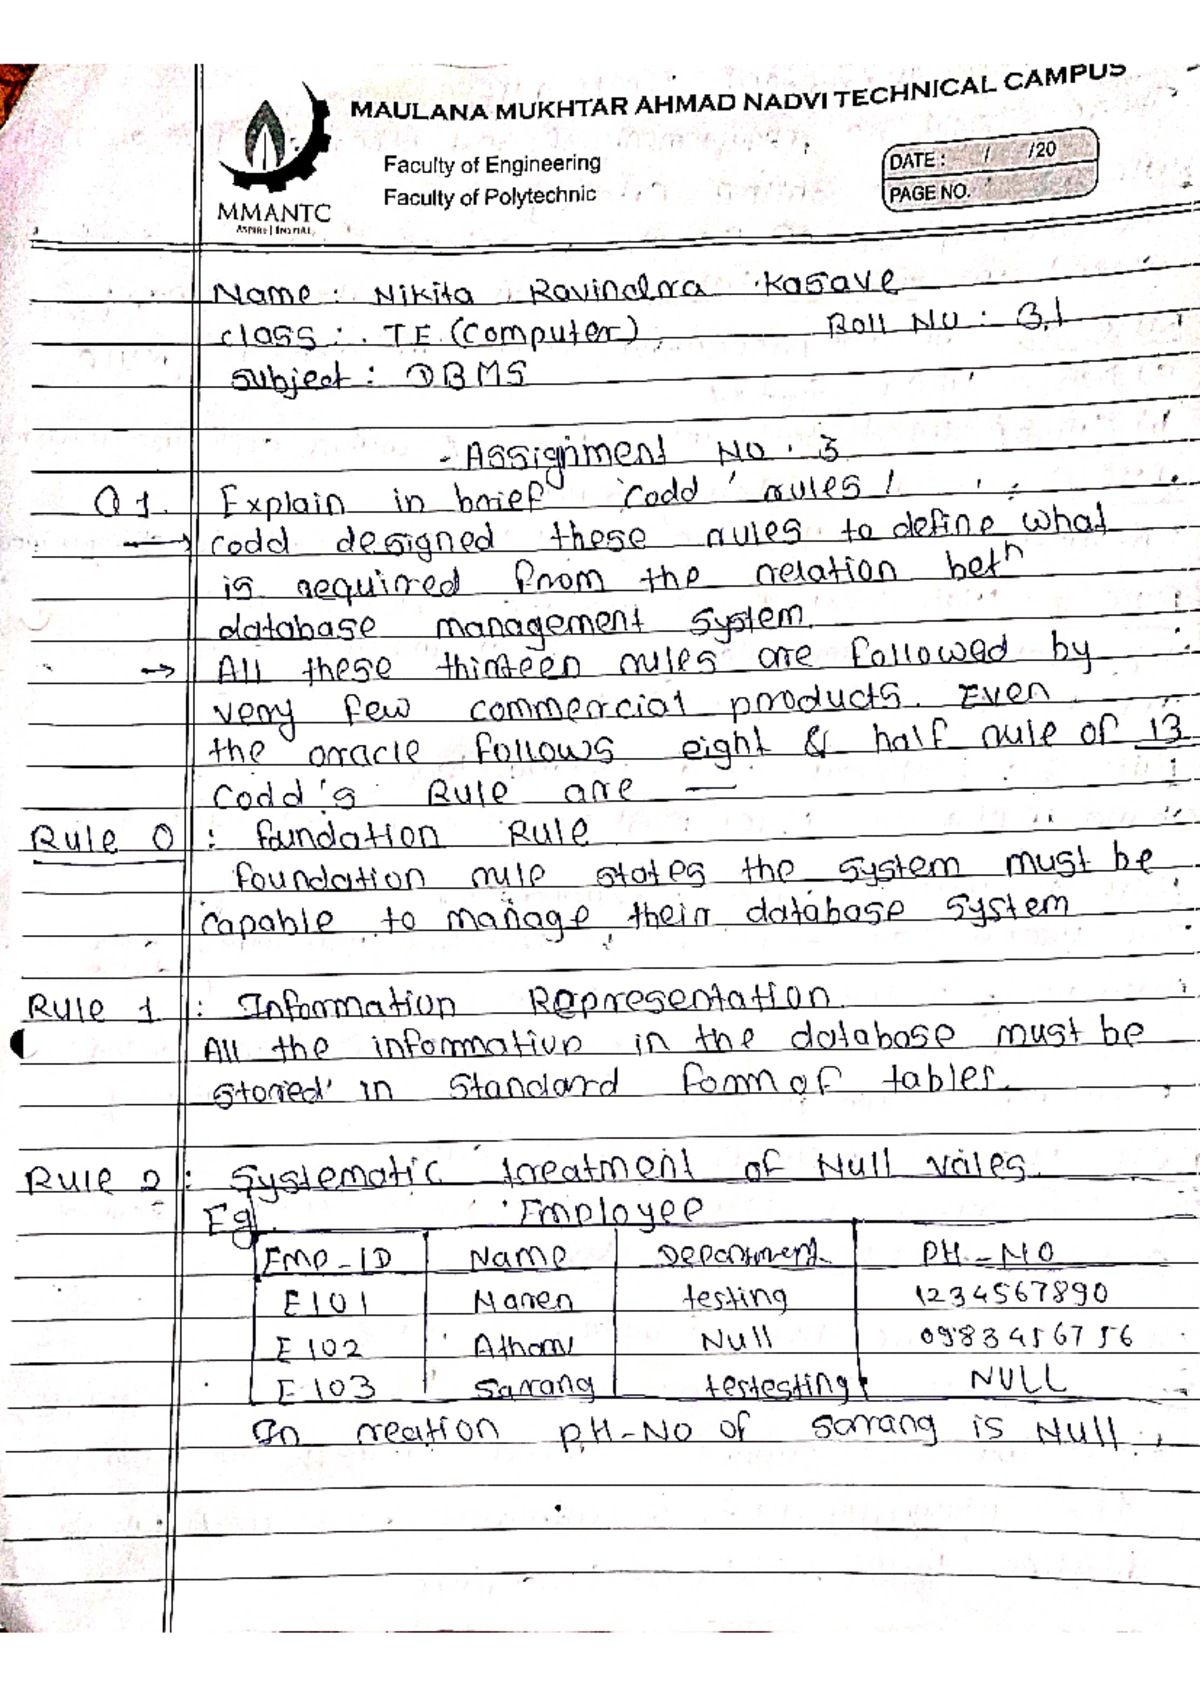 MAULANA MUKHTAR AHMAD NADVI TECHNICAL CAMPUS
Faculty of Engineering
Faculty of Polytechnic
DATE : / /20
PAGE NO.
MMANTC
Name : Nikita Ravindra Kasave
class : TE (Computer) Roll No : 31
Subject : DBMS
Assignment No. 3
Q1. Explain in brief 'Codd' rules!
→ codd designed these rules to define what
is required from the relation betn
database management system.
→ All these thirteen rules are followed by
very few commercial products. Even
the oracle follows eight & half rule of 13
Codd's Rule are —
Rule 0 : foundation Rule
foundation rule states the system must be
capable to manage their database system
Rule 1 : Information Representation
All the information in the database must be
stored in standard form of tables.
Rule 2 : Systematic treatment of Null vales
Eg. Employee
Emp-ID Name Department PH-NO
E101 Naren testing 1234567890
E102 Null
E103 Sarang testesting NULL
In reation PH-NO of Sarang is Null